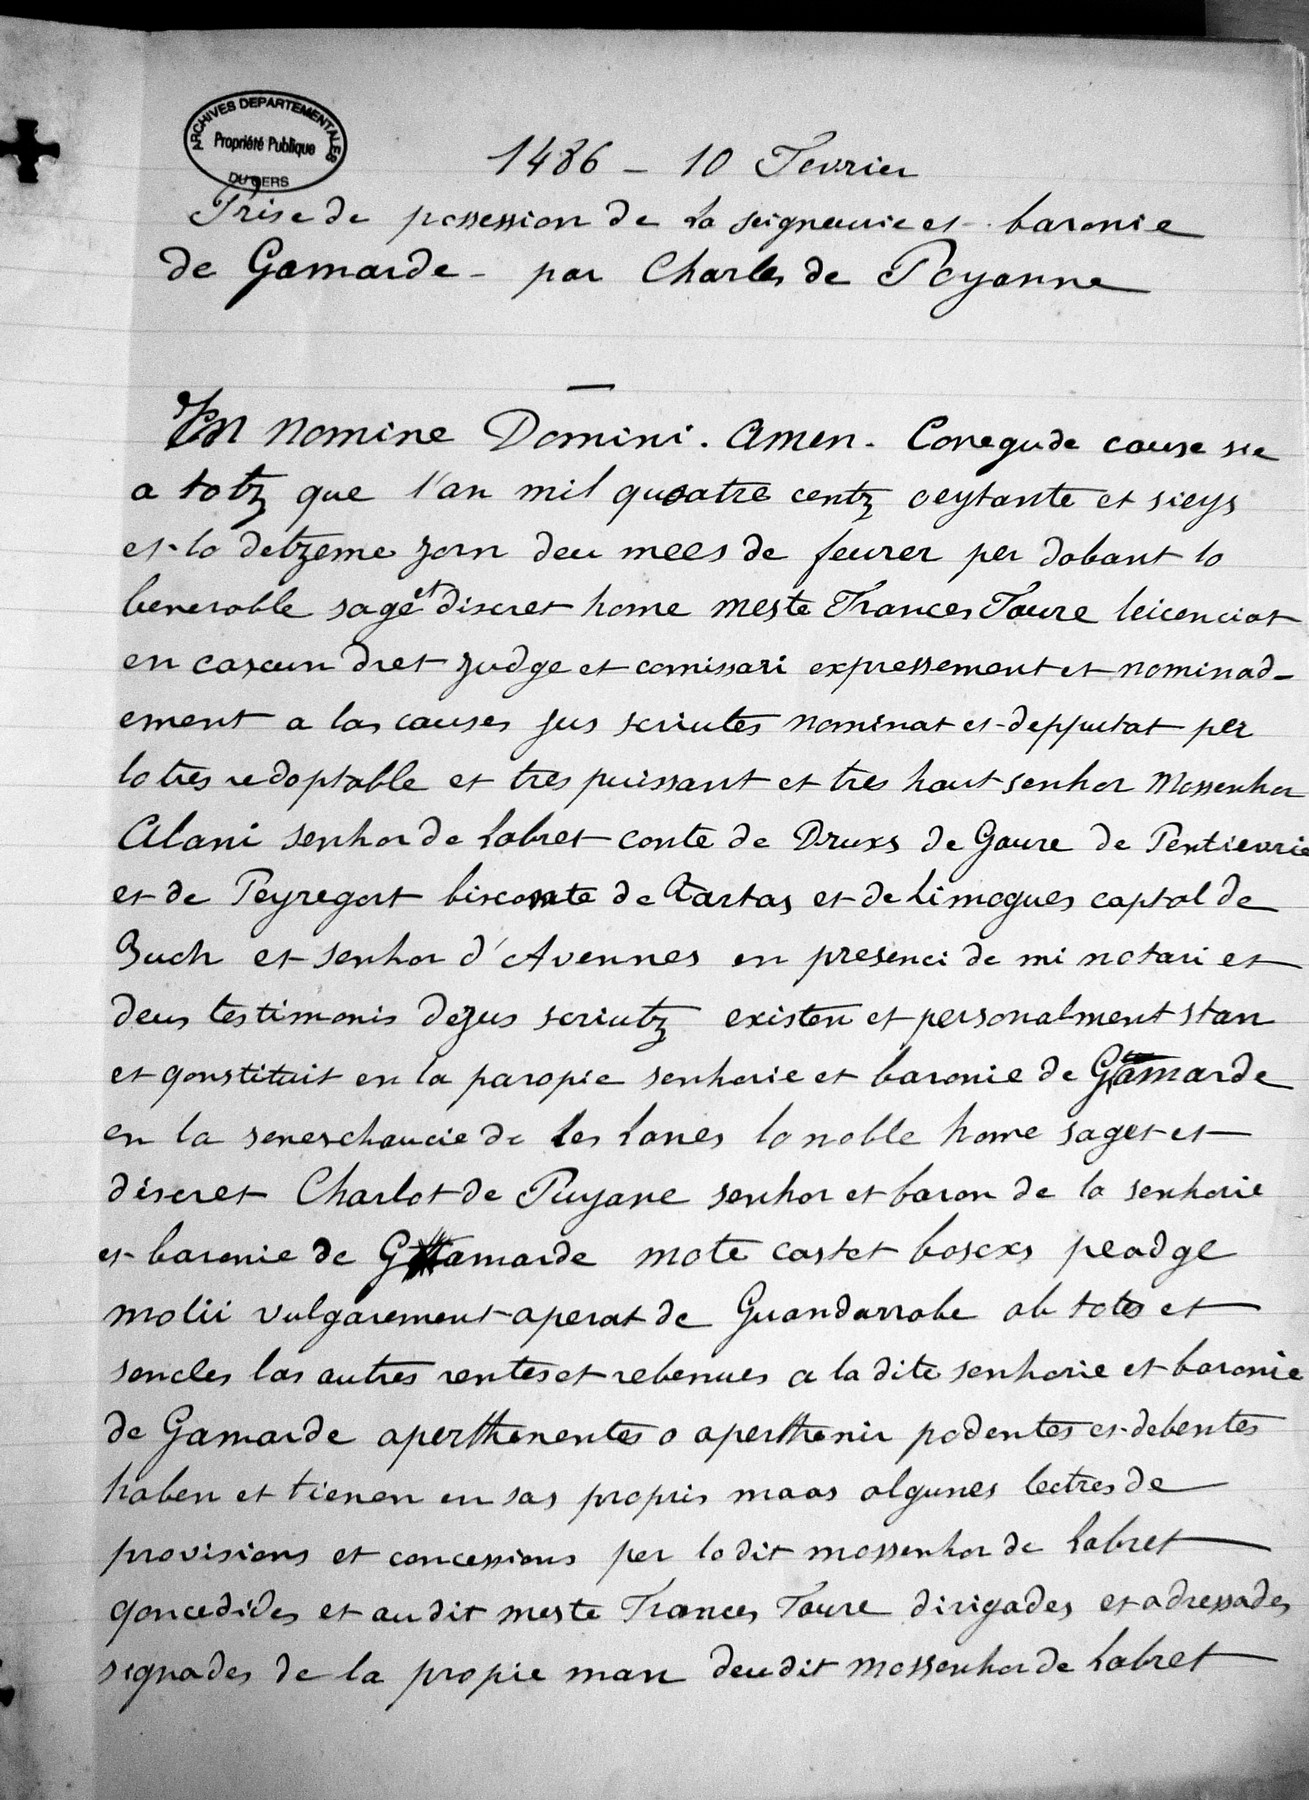 ARCHIVES DEPARTEMENTALES
Propriété Publique
DU GERS
1486 - 10 Fevrier
Prise de possession de la seigneurie et baronie
de Gamarde - par Charles de Poyanne
In nomine Domini. Amen. Conegude cause sie
a totz que l'an mil quoatre centz oeytante et sieys
et lo detzeme jorn deu mees de feurer per dabant lo
benerable sage et discret home meste Frances Faure leicenciat
en cascun dret judge et comissari expressement et nominad-
ement a las causes jus scriutes nominat et depputat per
lo tres redoptable et tres puissant et tres haut senhor Mossenhor
Alani senhor de Labret conte de Druxs de Gaure de Pentieurie
et de Peyregort bisconte de Tartas et de Limogues captal de
Buch et senhor d'Avennes en presenci de mi notari et
deus testimonis dejus scriutz existen et personalment stan
et qonstituit en la paropie senhorie et baronie de Gamarde
en la seneschaucie de les Lanes lo noble home saget et
discret Charlot de Puyane senhor et baron de la senhorie
et baronie de Gamarde mote castet boscxs peadge
molii vulgarement aperat de Guandarrabe ab tots et
sencles las autres rentes et rebenues a la dite senhorie et baronie
de Gamarde aperthenentes o aperthenir podentes et debentes
haben et tienen en sas propris maas algunes lectres de
provisions et concessions per lo dit mossenhor de Labret
qoncedides et au dit meste Frances Faure dirigades et adressades
signades de la propie man deudit mossenhor de Labret